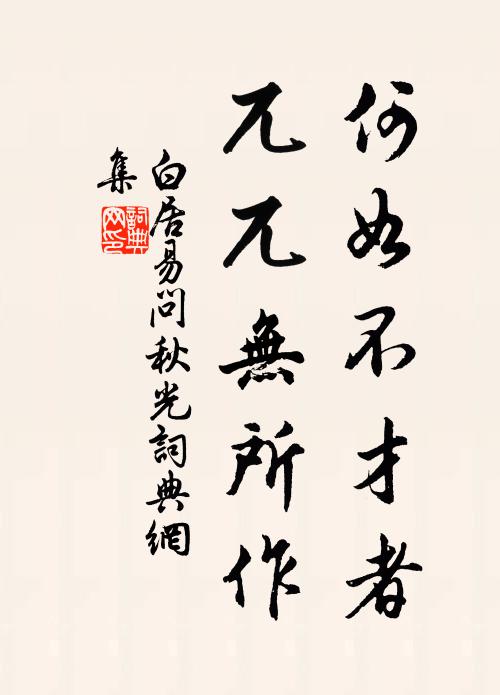 何如不才者
兀兀無所作
白居易問秋光詞典網
集
詞典网印